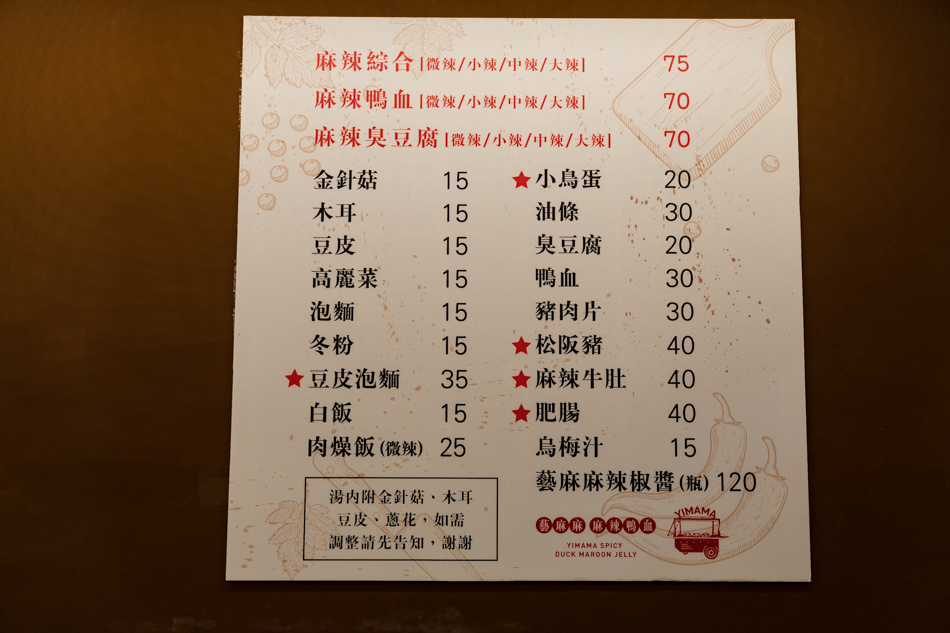 麻辣綜合|微辣/小辣/中辣/大辣| 75
麻辣鴨血|微辣/小辣/中辣/大辣| 70
麻辣臭豆腐|微辣/小辣/中辣/大辣| 70
金針菇 15
木耳 15
豆皮 15
高麗菜 15
泡麵 15
冬粉 15
★豆皮泡麵 35
白飯 15
肉燥飯(微辣) 25
湯內附金針菇、木耳
豆皮、蔥花，如需
調整請先告知，謝謝
★小鳥蛋 20
油條 30
臭豆腐 20
鴨血 30
豬肉片 30
★松阪豬 40
★麻辣牛肚 40
★肥腸 40
烏梅汁 15
藝麻麻辣椒醬(瓶) 120
藝麻麻 麻辣鴨血
YIMAMA SPICY
DUCK MAROON JELLY
YIMAMA